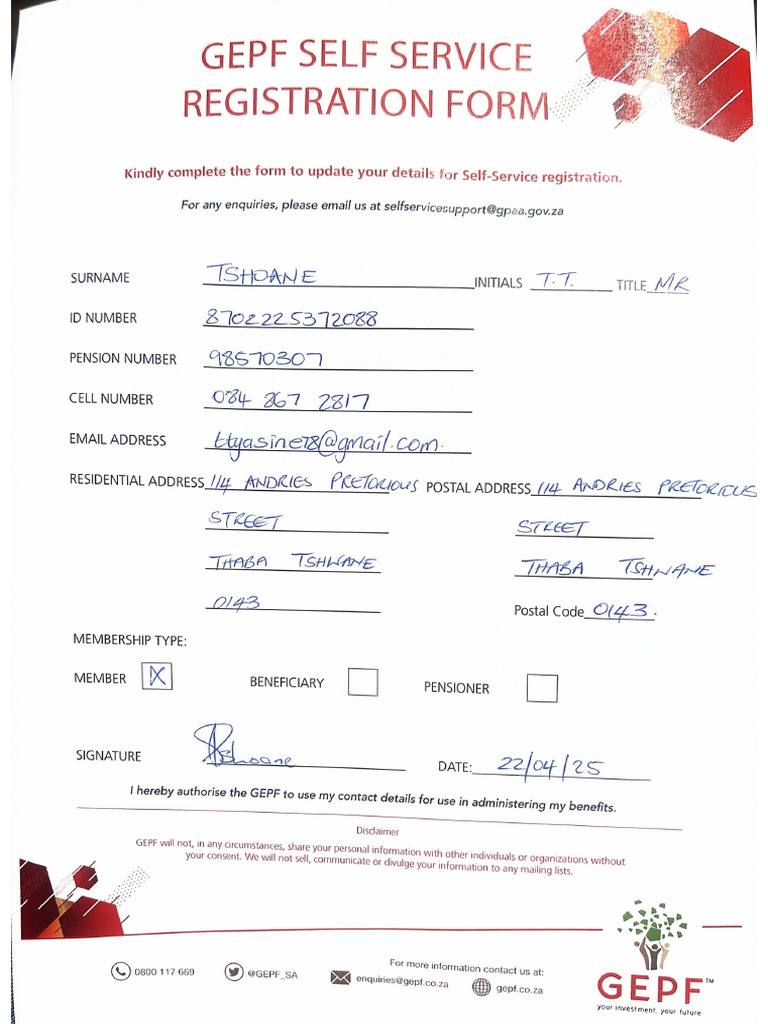 GEPF SELF SERVICE
REGISTRATION FORM
Kindly complete the form to update your details for Self-Service registration.
For any enquiries, please email us at selfservicesupport@gpaa.gov.za
SURNAME TSHOANE INITIALS T.T. TITLE MR
ID NUMBER 8702225372088
PENSION NUMBER 98570307
CELL NUMBER 084 867 2817
EMAIL ADDRESS ttyasine78@gmail.com.
RESIDENTIAL ADDRESS 114 ANDRIES PRETORIOUS POSTAL ADDRESS 114 ANDRIES PRETORIOUS
STREET STREET
THABA TSHWANE THABA TSHWANE
0143 Postal Code 0143.
MEMBERSHIP TYPE:
MEMBER X BENEFICIARY PENSIONER
SIGNATURE Tshoane DATE: 22/04/25
I hereby authorise the GEPF to use my contact details for use in administering my benefits.
Disclaimer
GEPF will not, in any circumstances, share your personal information with other individuals or organizations without
your consent. We will not sell, communicate or divulge your information to any mailing lists.
For more information contact us at:
0800 117 669 @GEPF_SA enquiries@gepf.co.za gepf.co.za
GEPF™
your investment, your future